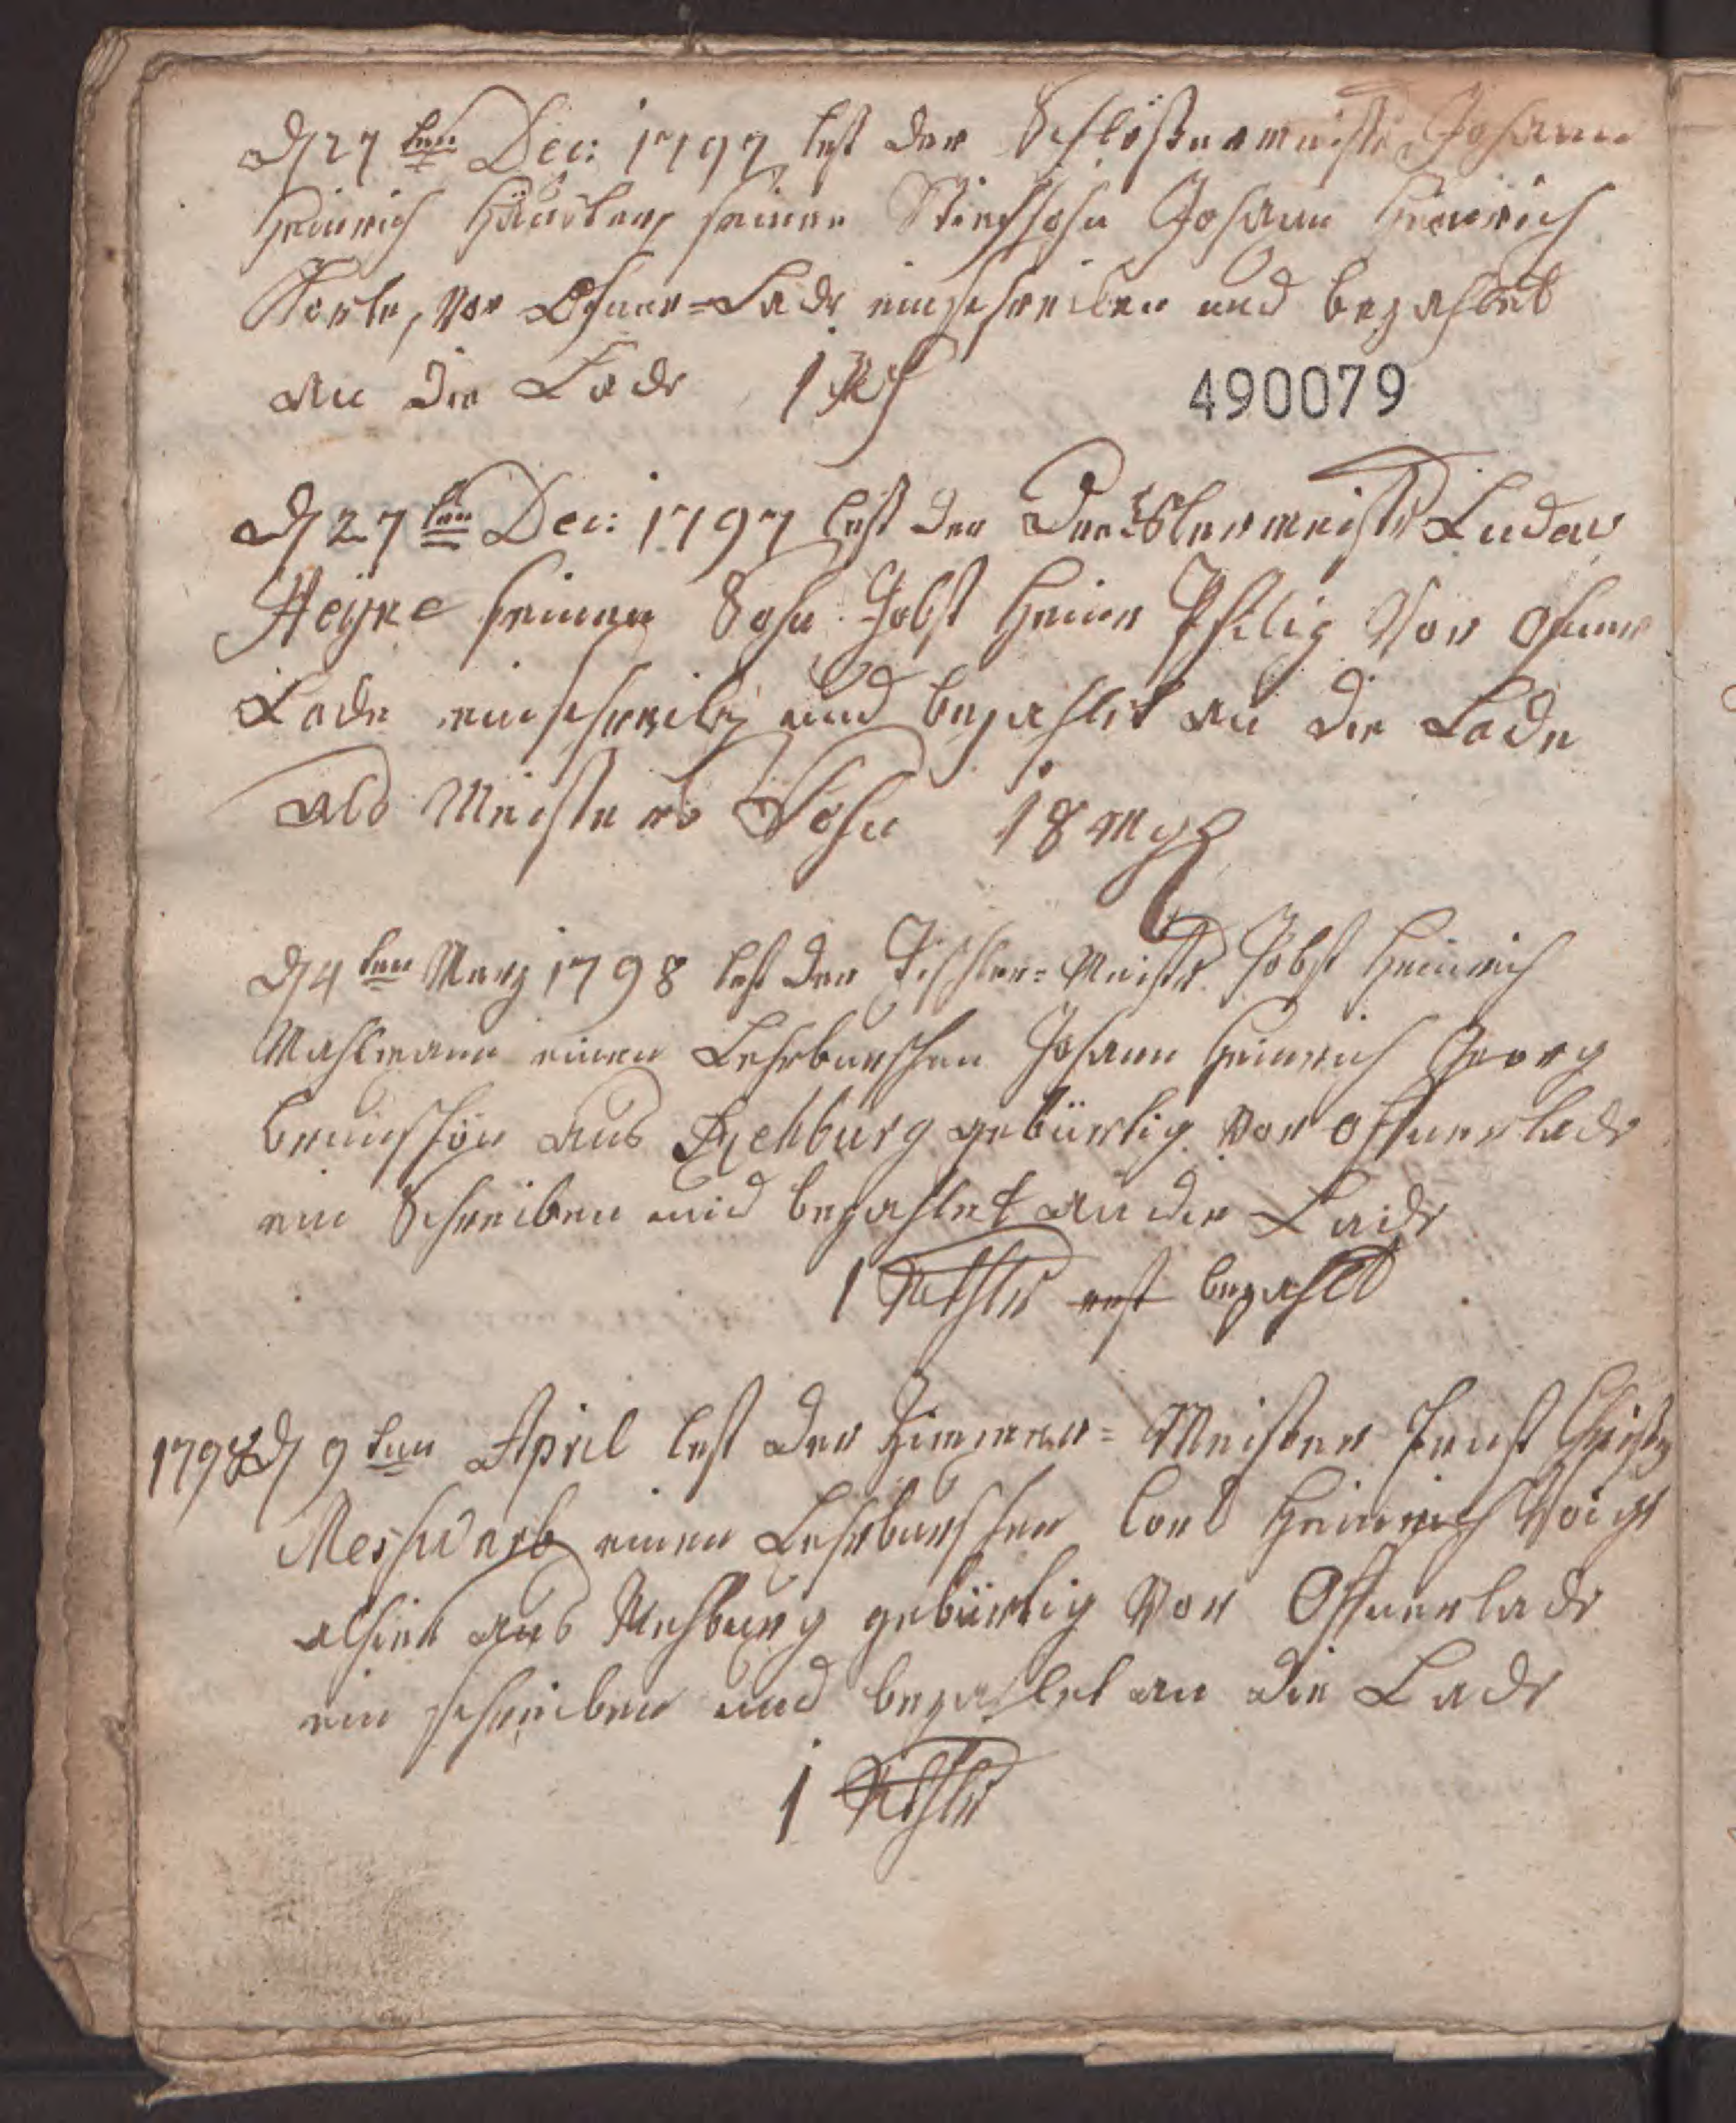 D 27ten Dec: 1797 lest der Schlößermeister Johann
Heinrich seinen Stiefsohn Johann Heinrich
Korte, vor Ofner-Lade einschreiben und bezahlet
an die Lade 1 Rth
490079
D 27ten Dec: 1797 lest der Drechslermeister Ludew
Heyne seinen Sohn Jobst Henr Philip Vor ofner
Lade einschreiben und bezahlet an die Lade
als Meisters Sohn 18 mgr
D 4ten Merz 1798 lest der Tischler-Meister Jobst Heinrich
Mahlmann einen Lehrburschen Johann Heinrich Georg
aus Rehburg gebürtig vor offnerlade
ein Schreiben und bezahlet an die Lade
1 Rthlr erst bezahlt
1798 D 9ten April lest der Zimmer-Meister Ernst
Meswarb einen Lehrburschen Cord Heinrich Voigt
alhier aus Rehburg gebürtig Vor Offnerlade
ein schreiben und bezahlet an die Lade
1 Rthlr